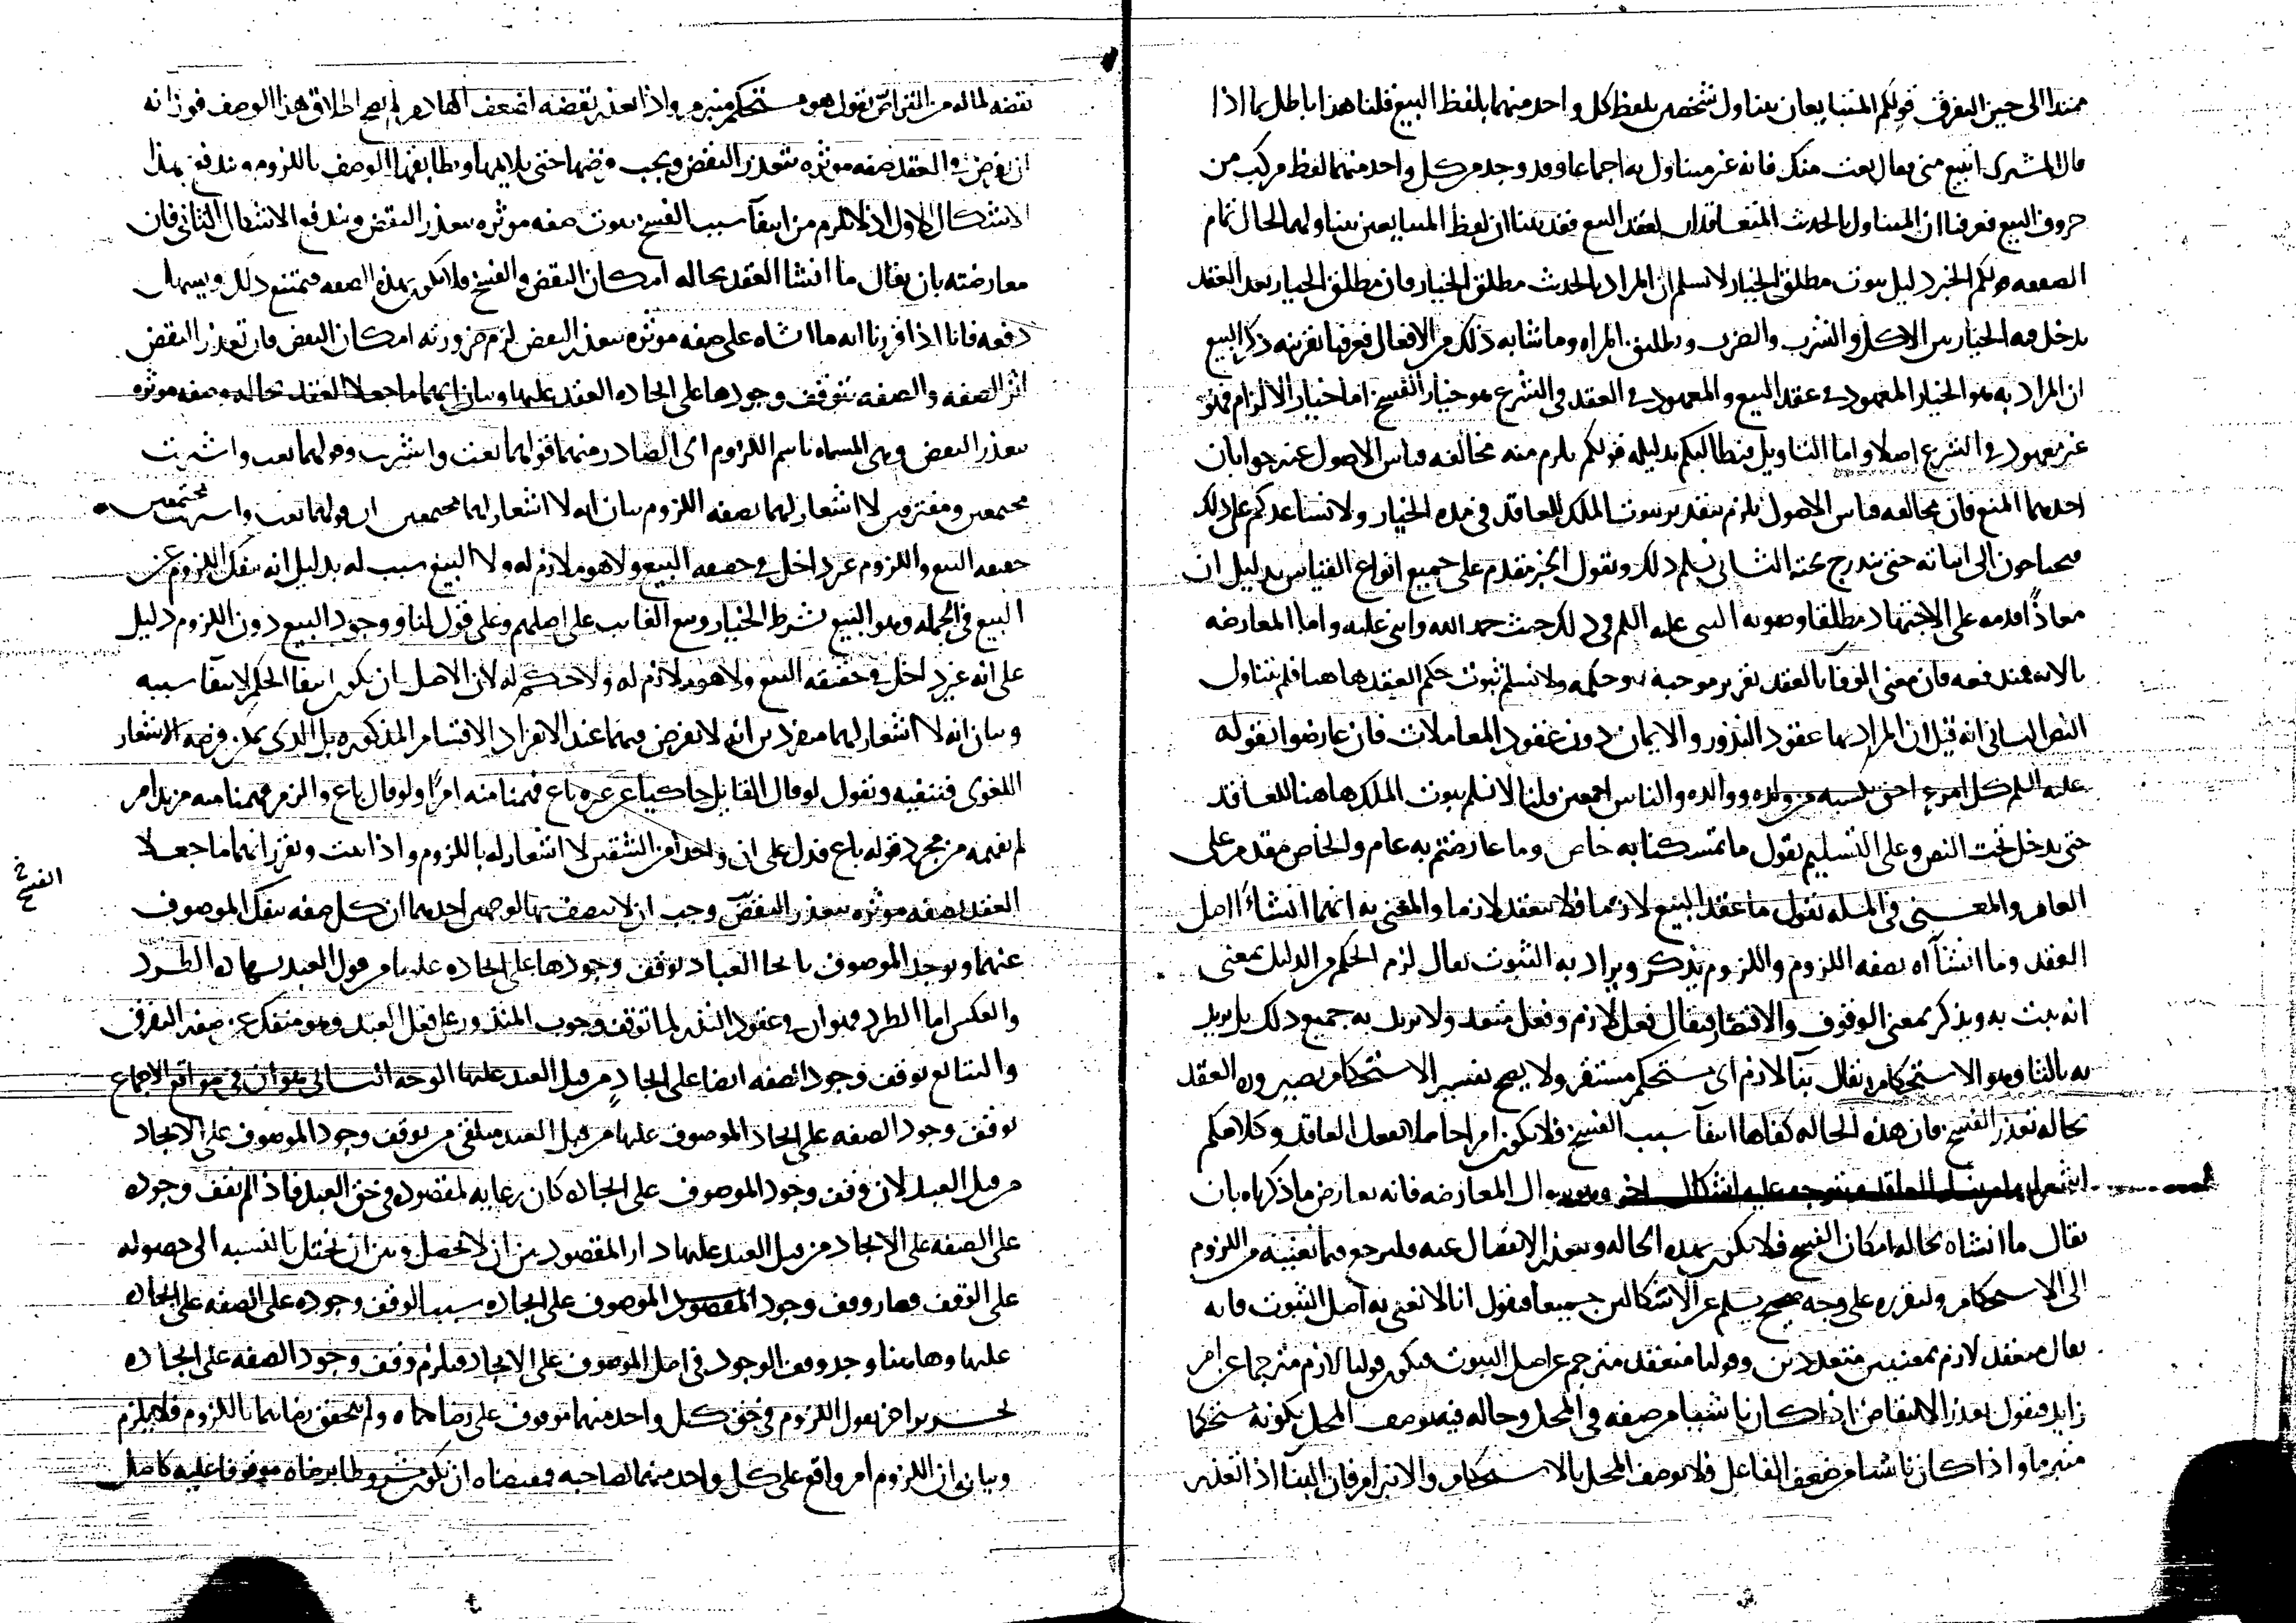 ممتدا الى حين التفرق قولكم المتبايعان يتناول شخصين يلفظ كل واحد منهما بلفظ البيع قلنا هذا باطل بما اذا
قال المشترى اتبيع منى فقال بعت منك فانه غير متناول به اجماعا وقد وجد من كل واحد منهما لفظ مركب من
حروف البيع فعرفنا ان المتناول بالحديث المتعاقدان لعقد البيع فقد بينا ان لفظ المتبايعين يتناولهما الحال تمام
الصفقه قولكم الخبر دليل ثبوت مطلق الخيار لا نسلم ان المراد بالحديث مطلق الخيار فان مطلق الخيار بعد العقد
يدخل فيه الخيار بين الاكل والشرب والضرب وتطليق المراه وما شابه ذلك من الافعال فعرفنا بقرينه ذكر البيع
ان المراد به هو الخيار المعهود في عقد البيع والمعهود في العقد في الشرع هو خيار الفسخ اما خيار الالزام فهو
غير معهود في الشرع اصلا واما التاويل فنطالبكم بدليله قولكم يلزم منه مخالفه قياس الاصول عنه جوابان
احدهما المنع فان مخالفه قياس الاصول تلزم بتقدير ثبوت الملك للعاقد في مده الخيار ولا نساعدكم على ذلك
فتحتاجون الى اثباته حتى يندرج تحته الثاني نسلم ذلك ونقول الخبر مقدم على جميع انواع القياس بدليل ان
معاذًا قدمه على الاجتهاد مطلقا وصوبه النبى عليه السلم في ذلك حيث حمد الله واثنى عليه واما المعارضه
بالايه فمندفعه فان معنى الوفا بالعقد تقرير موجبه وحكمه ولا نسلم ثبوت حكم العقد هاهنا فلم يتناول
النص الثاني انه قيل ان المراد بها عقود النذور والايمان دون عقود المعاملات فان عارضوا بقوله
عليه السلم كل امرء احق بكسبه من ولده ووالده والناس اجمعين قلنا لا نسلم ثبوت الملك هاهنا للعاقد
حتى يدخل تحت النص وعلى التسليم نقول ما تمسكنا به خاص وما عارضتم به عام والخاص مقدم على
العام والمعنى في المسله نقول ما عقد البيع لازما فلا ينعقد لازما والمعني به انهما انشائا اصل
العقد وما انشآه بصفه اللزوم واللزوم يذكر ويراد به الثبوت يقال لزم الحكم من الدليل بمعنى
انه ثبت به ويذكر بمعنى الوقوف والاقتصار فيقال فعل لازم وفعل متعد ولا نريد به جميع ذلك بل نريد
به الثا وهو الاستحكام يقال بنآ لازم اى مستحكم مستقر ولا يصح تفسير الاستحكام بصيروره العقد
بحاله تعذر الفسخ فان هذه الحاله كفاها انتفآ سبب الفسخ فلا يكون امرا حاصلا بفعل العاقد وكلامكم
سوال المعارضه فانه يعارض ما ذكرناه بان
يقال ما انشاه بحاله امكان الفسخ فلا يكون بهذه الحاله ويتعذر الانفصال عنه فليرجع فيما نعنيه من اللزوم
الى الاستحكام ولنقرره على وجه صحيح يسلم عن الاشكالين جميعا فنقول انا لا نعني به اصل الثبوت فانه
يقال منعقد لازم بمعنيين متعددين وقولنا منعقد مترجم عن اصل الثبوت فيكون قولنا لازم مترجما عن امر
زايد فنقول تعذر الانتقاض اذا كان ناشيا من صفه في المحل وحاله فيه يوصف المحل بكونه مستحكما
منبرما واذا كان ناشيا من ضعف الفاعل فلا يوصف المحل بالاستحكام والانبرام فان البنآ اذا تعذر
نقضه لما له من التراص نقول هو مستحكم منبرم واذا تعذر نقضه لضعف الهادم لم يصح اطلاق هذا الوصف فوزانه
ان يفرض في العقد صفه موثره بتعذر النقض ويجب فرضها حتى يلايمها ويطابقها الوصف باللزوم ويندفع بهذا
الاشكال الاول اذ لا يلزم من انتفآ سبب الفسخ ثبوت صفه موثره بتعذر النقض ويندفع الاشكال الثاني فان
معارضته بان يقال ما انشا العقد بحاله امكان النقض والفسخ فلا يكون بهذه الصفه فيمتنع ذلك ويسهل
دفعه فانا اذا قررنا انه ما انشاه على صفه موثره بتعذر النقض لزم ضرورته امكان النقض فان تعذر النقض
اثر الصفه والصفه يتوقف وجودها على ايجاده العقد عليها وبيان انهما ما جعلا العقد بحاله وصفه موثره
بتعذر النقض وهى المسماه باسم اللزوم اى الصادر منهما قولهما بعت واشتريت وقولهما بعت واشتريت
مجتمعين ومفترقين لا اشعار لهما بصفه اللزوم بيان انه لا اشعار لهما مجتمعين ان قولهما بعت واشتريت مجتمعين
حقيقه البيع واللزوم غير داخل في حقيقه البيع ولا هو ملازم له ولا البيع سبب له بدليل انه ينفك اللزوم عن
البيع في الجمله وهو البيع بشرط الخيار وبيع الغايب على اصلهم وعلى قول لنا ووجود البيع دون اللزوم دليل
على انه غير داخل في حقيقه البيع ولا هو ملازم له ولا حكم له لان الاصل ان يكون انتفا الحكم لانتفا سببه
وبيان انه لا اشعار لهما منفردين انه لا يفرض فيهما عند الانفراد الاقسام المذكوره بل الذى يمكن فرضه الاشعار
اللغوى فننفيه ونقول لو قال القايل حاكيا عن غيره باع فهمنا منه امرًا ولو قال باع والزم فهمنا منه مزيد امر
لم نفهمه من مجرد قوله باع فدل على ان واحدا من الشقين لا اشعار له باللزوم واذا ثبت وتقرر انهما ما جعلا
العقد بصفه موثره بتعذر النقض وجب ان لا يتصف بها لوجهين احدهما ان كل صفه ينفك الموصوف
الفسخ
عنها ويوجد الموصوف بايجاد العباد توقف وجودها على ايجاده عليها من قبل العبد يشهد له الطرد
والعكس اما الطرد فهو ان في عقود النذر لما توقف وجوب المنذور على فعل العبد وهو منفك عن صفه التفرق
والتتابع توقف وجود الصفه ايضا على ايجادٍ من قبل العبد عليها الوجه الثاني هو ان في مواقع الاجماع
توقف وجود الصفه على ايجاد الموصوف عليها من قبل العبد متلقى من توقف وجود الموصوف على الايجاد
من قبل العبد لان وقف وجود الموصوف على ايجاده كان رعايه لمقصوده في حق العبد فاذا لم نقف وجوده
على الصفه على الايجاد من قبل العبد عليها دار المقصود بين ان لا يحصل وبين ان يختل بالنسبه الى حصوله
على الوقف فصار وقف وجود المقصود الموصوف على ايجاده سببا لوقف وجوده على الصفه على ايجاده
عليها وهاهنا وجد وقف الوجود في اصل الموصوف على الايجاد فيلزم وقف وجود الصفه على ايجاده
تحرير اخر نقول اللزوم في حق كل واحد منهما موقوف على رضاهما ولم يتحقق رضاهما باللزوم فلا يلزم
وبيانه ان اللزوم امر واقع على كل واحد منهما لصاحبه فمقتضاه ان يكون مشروطا برضاه موقوفا عليه كاصل